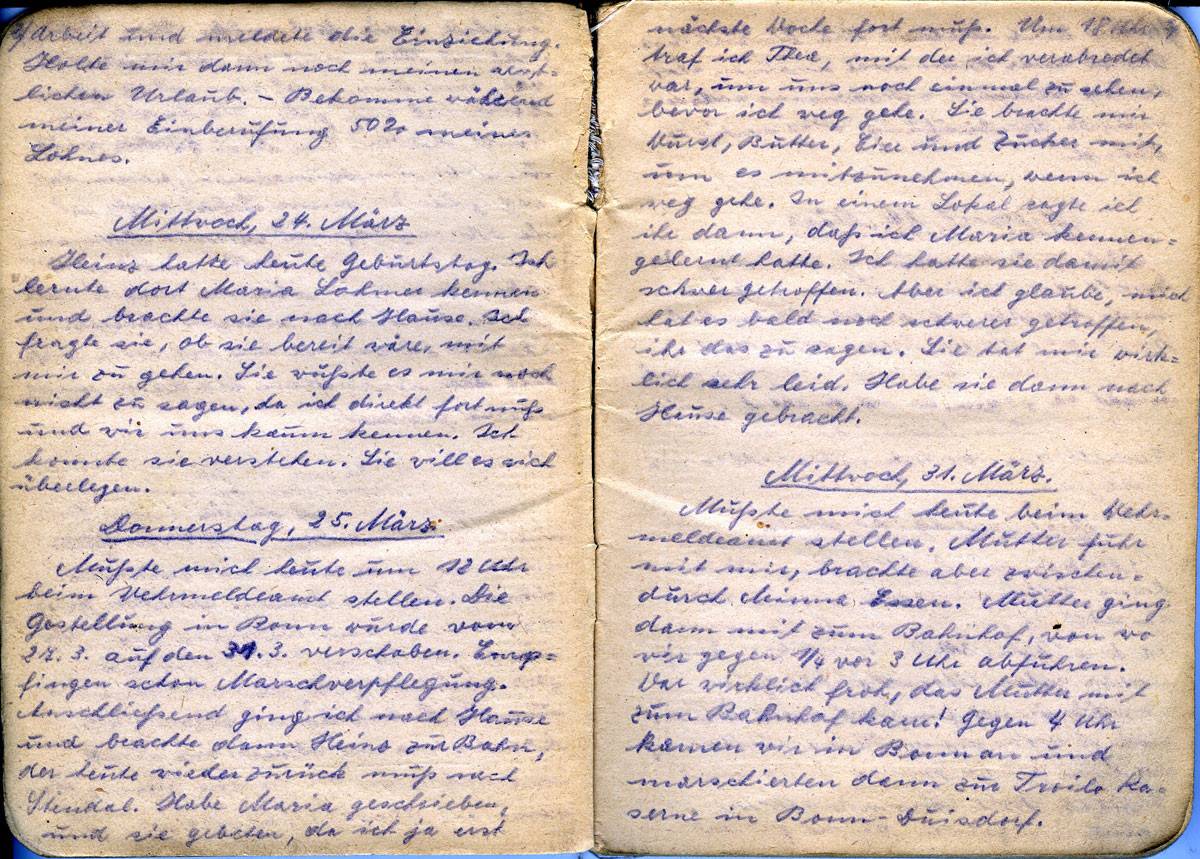 Arbeit und meldete die Einziehung.
Holte mir dann noch meinen rest-
lichen Urlaub. – Bekomme während
meiner Einberufung 50% meines
Lohnes.
Mittwoch, 24. März
Heinz hatte heute Geburtstag. Ich
lernte dort Maria Lohmer kennen
und brachte sie nach Hause. Ich
fragte sie, ob sie bereit wäre, mit
mir zu gehen. Sie wußte es mir noch
nicht zu sagen, da ich direkt fort muß
und wir uns kaum kennen. Ich
konnte sie verstehen. Sie will es sich
überlegen.
Donnerstag, 25. März
Mußte mich heute um 12 Uhr
beim Wehrmeldeamt stellen. Die
Gestellung in Bonn wurde vom
27.3. auf den 31.3. verschoben. Emp-
fingen schon Marschverpflegung.
Anschließend ging ich nach Hause
und brachte dann Heinz zur Bahn,
der heute wieder zurück muß nach
Stendal. Habe Maria geschrieben,
und sie gebeten, da ich ja erst
nächste Woche fort muß. Um 18 Uhr
traf ich Thea, mit der ich verabredet
war, um uns noch einmal zu sehen,
bevor ich weg gehe. Sie brachte mir
Wurst, Butter, Eier und Zucker mit,
um es mitzunehmen, wenn ich
weg gehe. In einem Lokal sagte ich
ihr dann, daß ich Maria kennen-
gelernt hatte. Ich hatte sie damit
schwer getroffen. Aber ich glaube, mich
hat es bald noch schwerer getroffen,
ihr das zu sagen. Sie tat mir wirk-
lich sehr leid. Habe sie dann nach
Hause gebracht.
Mittwoch, 31. März.
Mußte mich heute beim Wehr-
meldeamt stellen. Mutter fuhr
mit mir, brachte aber zwischen-
durch Minna Essen. Mutter ging
dann mit zum Bahnhof, von wo
wir gegen 1/4 vor 3 Uhr abfuhren.
War wirklich froh, das Mutter mit
zum Bahnhof kam! Gegen 4 Uhr
kamen wir in Bonn an und
marschierten dann zur Troilo Ka-
serne in Bonn-Duisdorf.